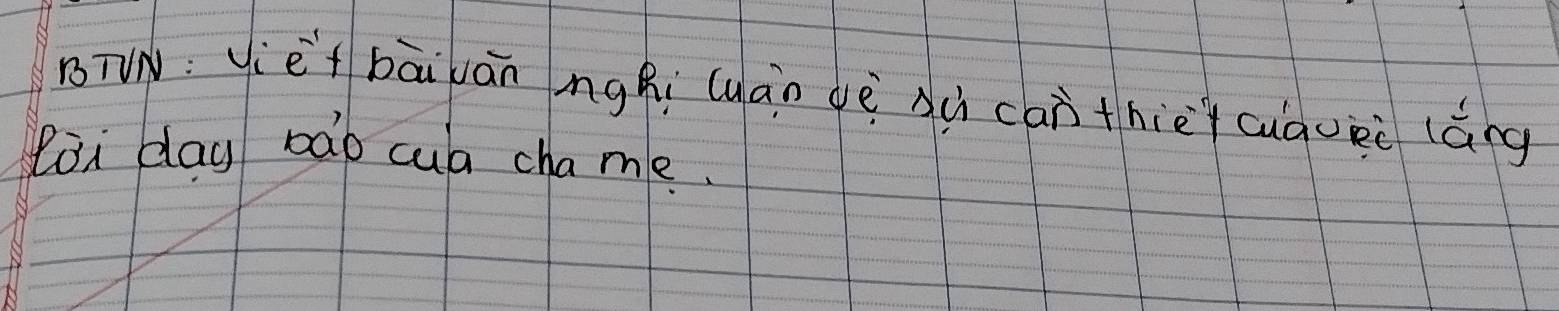 BTVN: Viết bài văn nghị luận về sự cần thiết của việc lắng
lời dạy bảo của cha mẹ.